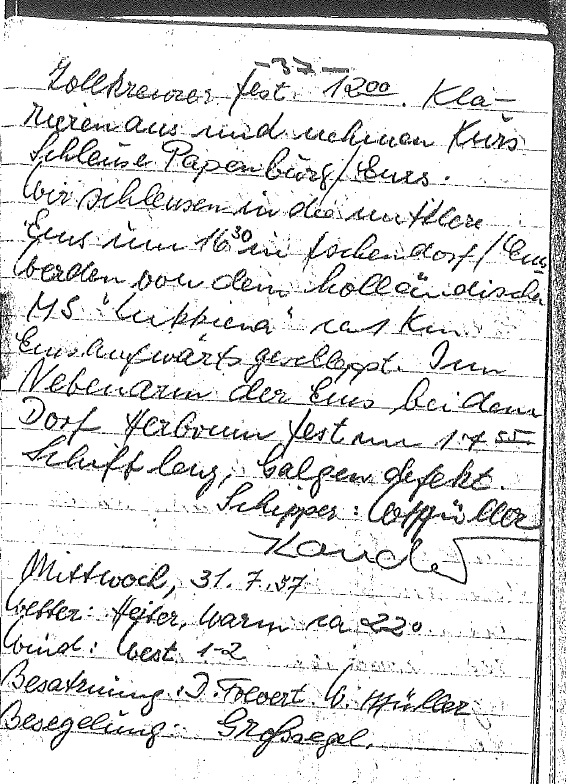 -37-
Zollkreuzer fest. 12 00. Kla-
rieren aus und nehmen Kurs
Schleuse Papenburg/Ems.
Wir schleusen in die mittlere
Ems um 16 30 in Aschendorf/Ems
Werden von dem holländischen
MS "Lukkiena" ca 1 Km
Emsaufwärts geschleppt. Im
Nebenarm der Ems bei dem
Dorf Herbrum fest um 17 55
Schiff leng, Galgen defekt.
Schipper: W Müller
Mittwoch, 31.7.57
Wetter: Heiter, warm ca 22°
Wind: West 1-2
Besatzung: D. W. Müller
Besegelung: Großsegel.